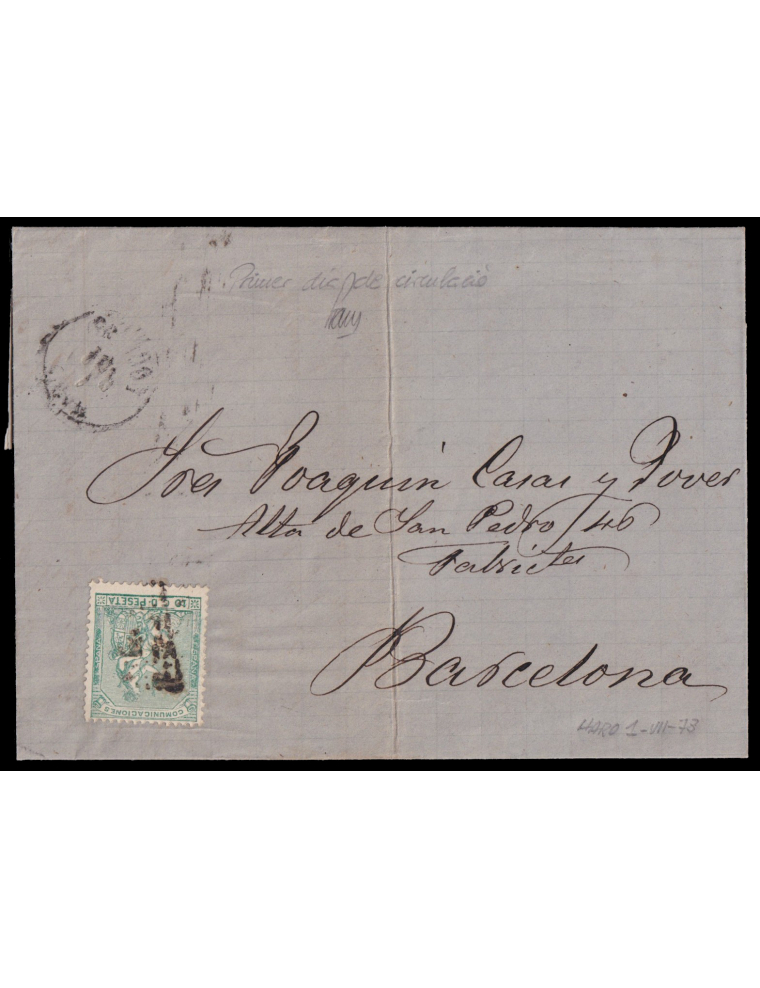 Primer día de circulació
Sres Joaquin Casas y Jover
Alta de San Pedro 46
Fabrictes
Barcelona
HARO 1-VII-73
10 C. D PESETA
COMUNICACIONES